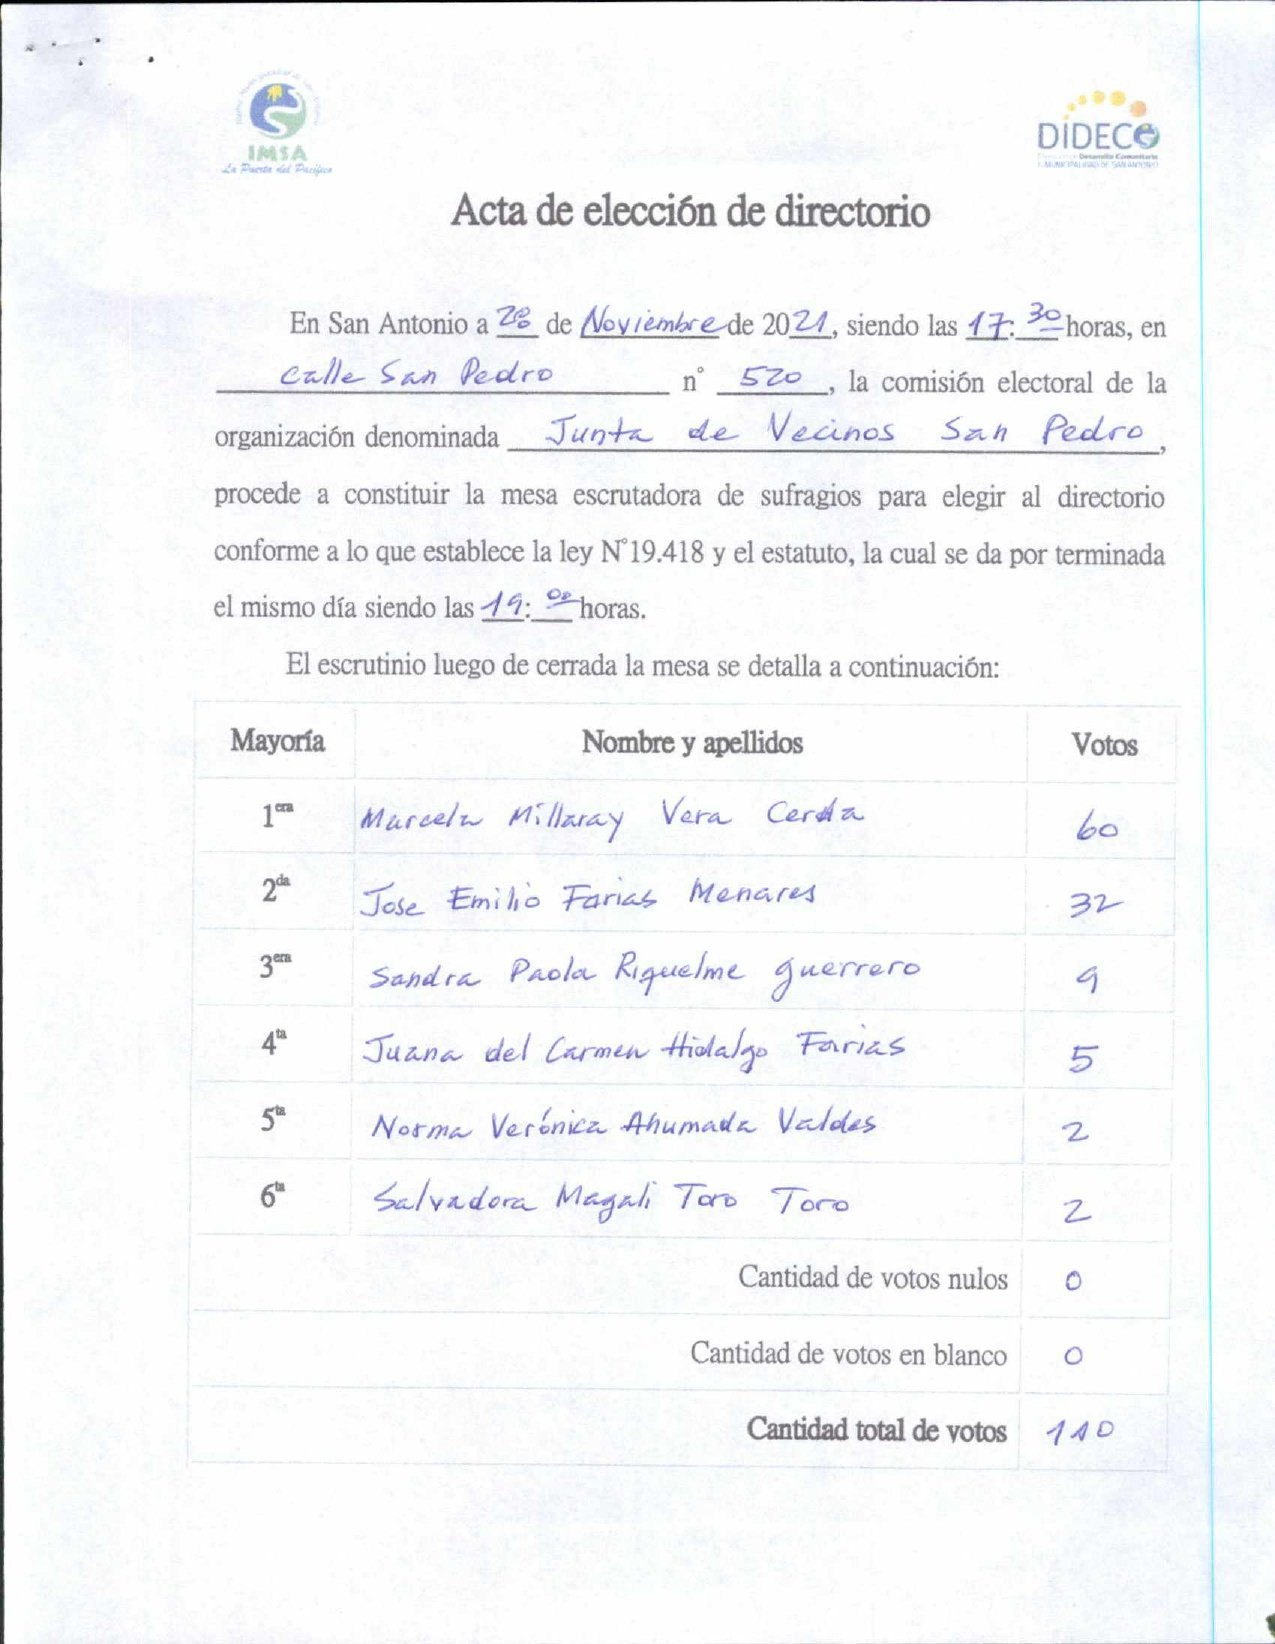 IMSA
La Puerta del Pacífico
DIDECO
Desarrollo Comunitario
I. MUNICIPALIDAD DE SAN ANTONIO
Acta de elección de directorio
En San Antonio a 28 de Noviembre de 2021, siendo las 17:30 horas, en
Calle San Pedro n° 520, la comisión electoral de la
organización denominada Junta de Vecinos San Pedro,
procede a constituir la mesa escrutadora de sufragios para elegir al directorio
conforme a lo que establece la ley N°19.418 y el estatuto, la cual se da por terminada
el mismo día siendo las 19:00 horas.
El escrutinio luego de cerrada la mesa se detalla a continuación:
Mayoría Nombre y apellidos Votos
1era Marcela Millaray Vera Cerda 60
2da Jose Emilio Farias Menares 32
3era Sandra Paola Riquelme Guerrero 9
4ta Juana del Carmen Hidalgo Farias 5
5ta Norma Verónica Ahumada Valdes 2
6ta Salvadora Magali Toro Toro 2
Cantidad de votos nulos 0
Cantidad de votos en blanco 0
Cantidad total de votos 110